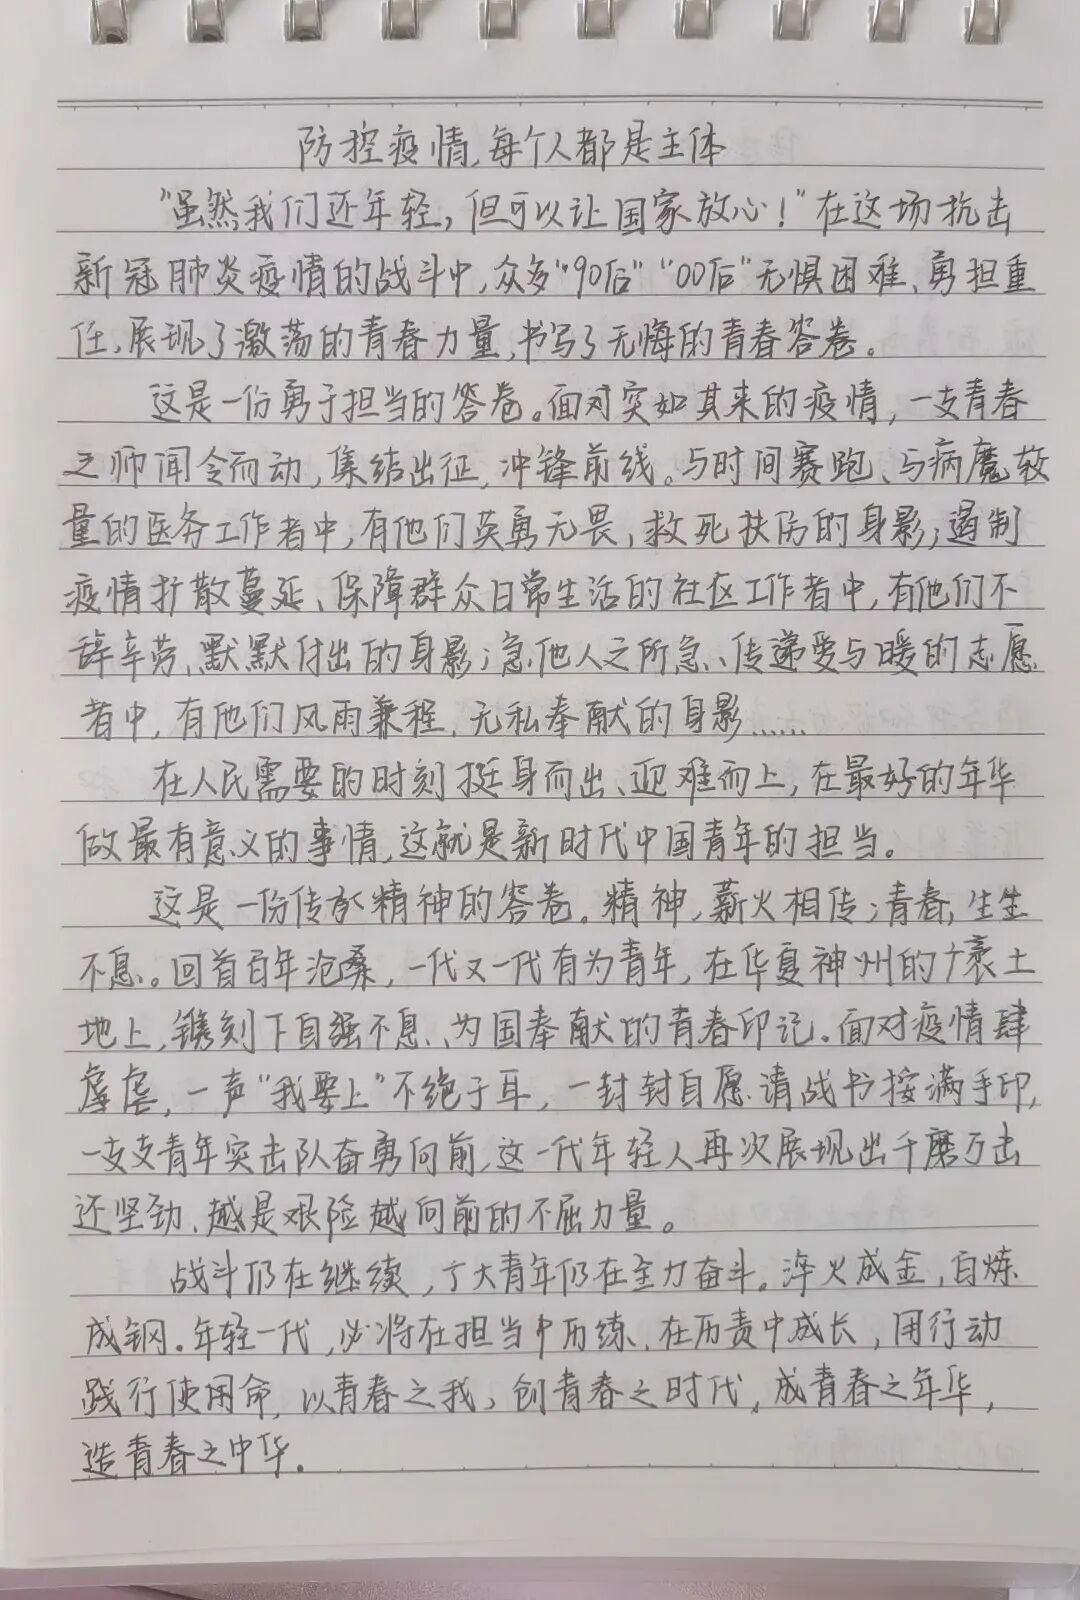 防控疫情,每个人都是主体
“虽然我们还年轻,但可以让国家放心!”在这场抗击
新冠肺炎疫情的战斗中,众多“90后”“00后”无惧困难、勇担重
任,展现了激荡的青春力量,书写了无悔的青春答卷。
这是一份勇于担当的答卷。面对突如其来的疫情,一支青春
之师闻令而动,集结出征,冲锋前线。与时间赛跑、与病魔较
量的医务工作者中,有他们英勇无畏,救死扶伤的身影;遏制
疫情扩散蔓延、保障群众日常生活的社区工作者中,有他们不
辞辛劳、默默付出的身影;急他人之所急、传递爱与暖的志愿
者中,有他们风雨兼程、无私奉献的身影……
在人民需要的时刻挺身而出、迎难而上,在最好的年华
做最有意义的事情,这就是新时代中国青年的担当。
这是一份传承精神的答卷。精神,薪火相传;青春,生生
不息。回首百年沧桑,一代又一代有为青年,在华夏神州的广袤土
地上,镌刻下自强不息、为国奉献的青春印记。面对疫情肆
虐,一声“我要上”不绝于耳,一封封自愿请战书按满手印,
一支支青年突击队奋勇向前,这一代年轻人再次展现出千磨万击
还坚劲、越是艰险越向前的不屈力量。
战斗仍在继续,广大青年仍在全力奋斗。淬火成金,百炼
成钢。年轻一代,必将在担当中历练、在历责中成长,用行动
践行使用命,以青春之我,创青春之时代,成青春之年华,
造青春之中华.